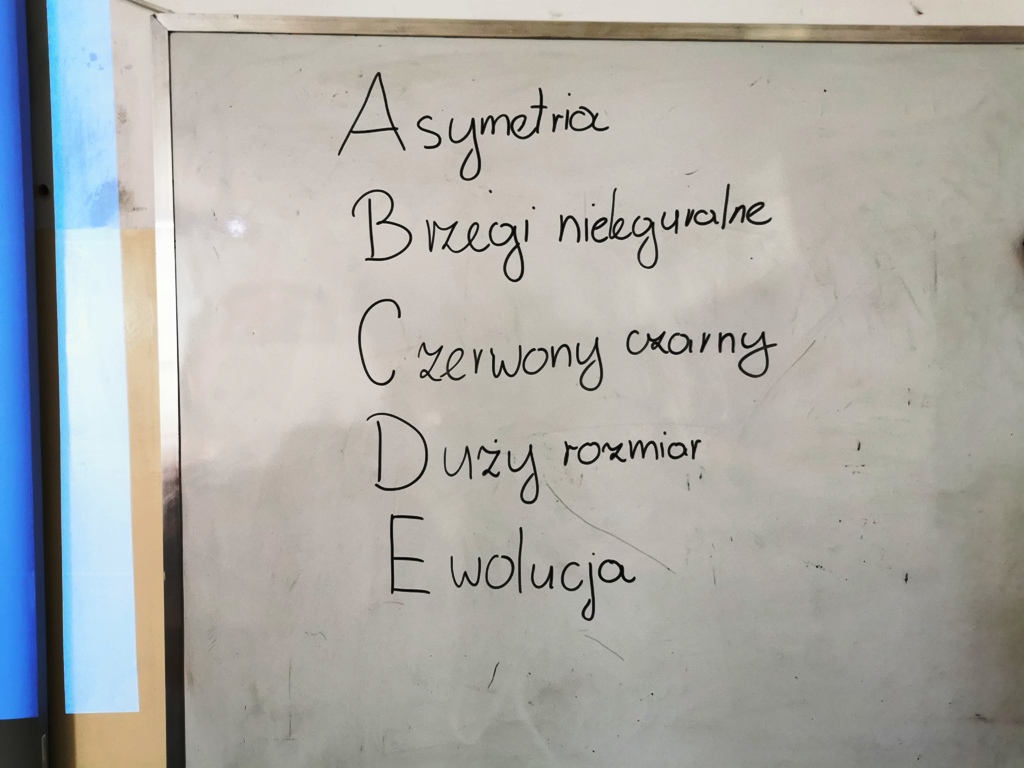 Asymetria
Brzegi nieleguralne
Czerwony czarny
Duży rozmiar
Ewolucja